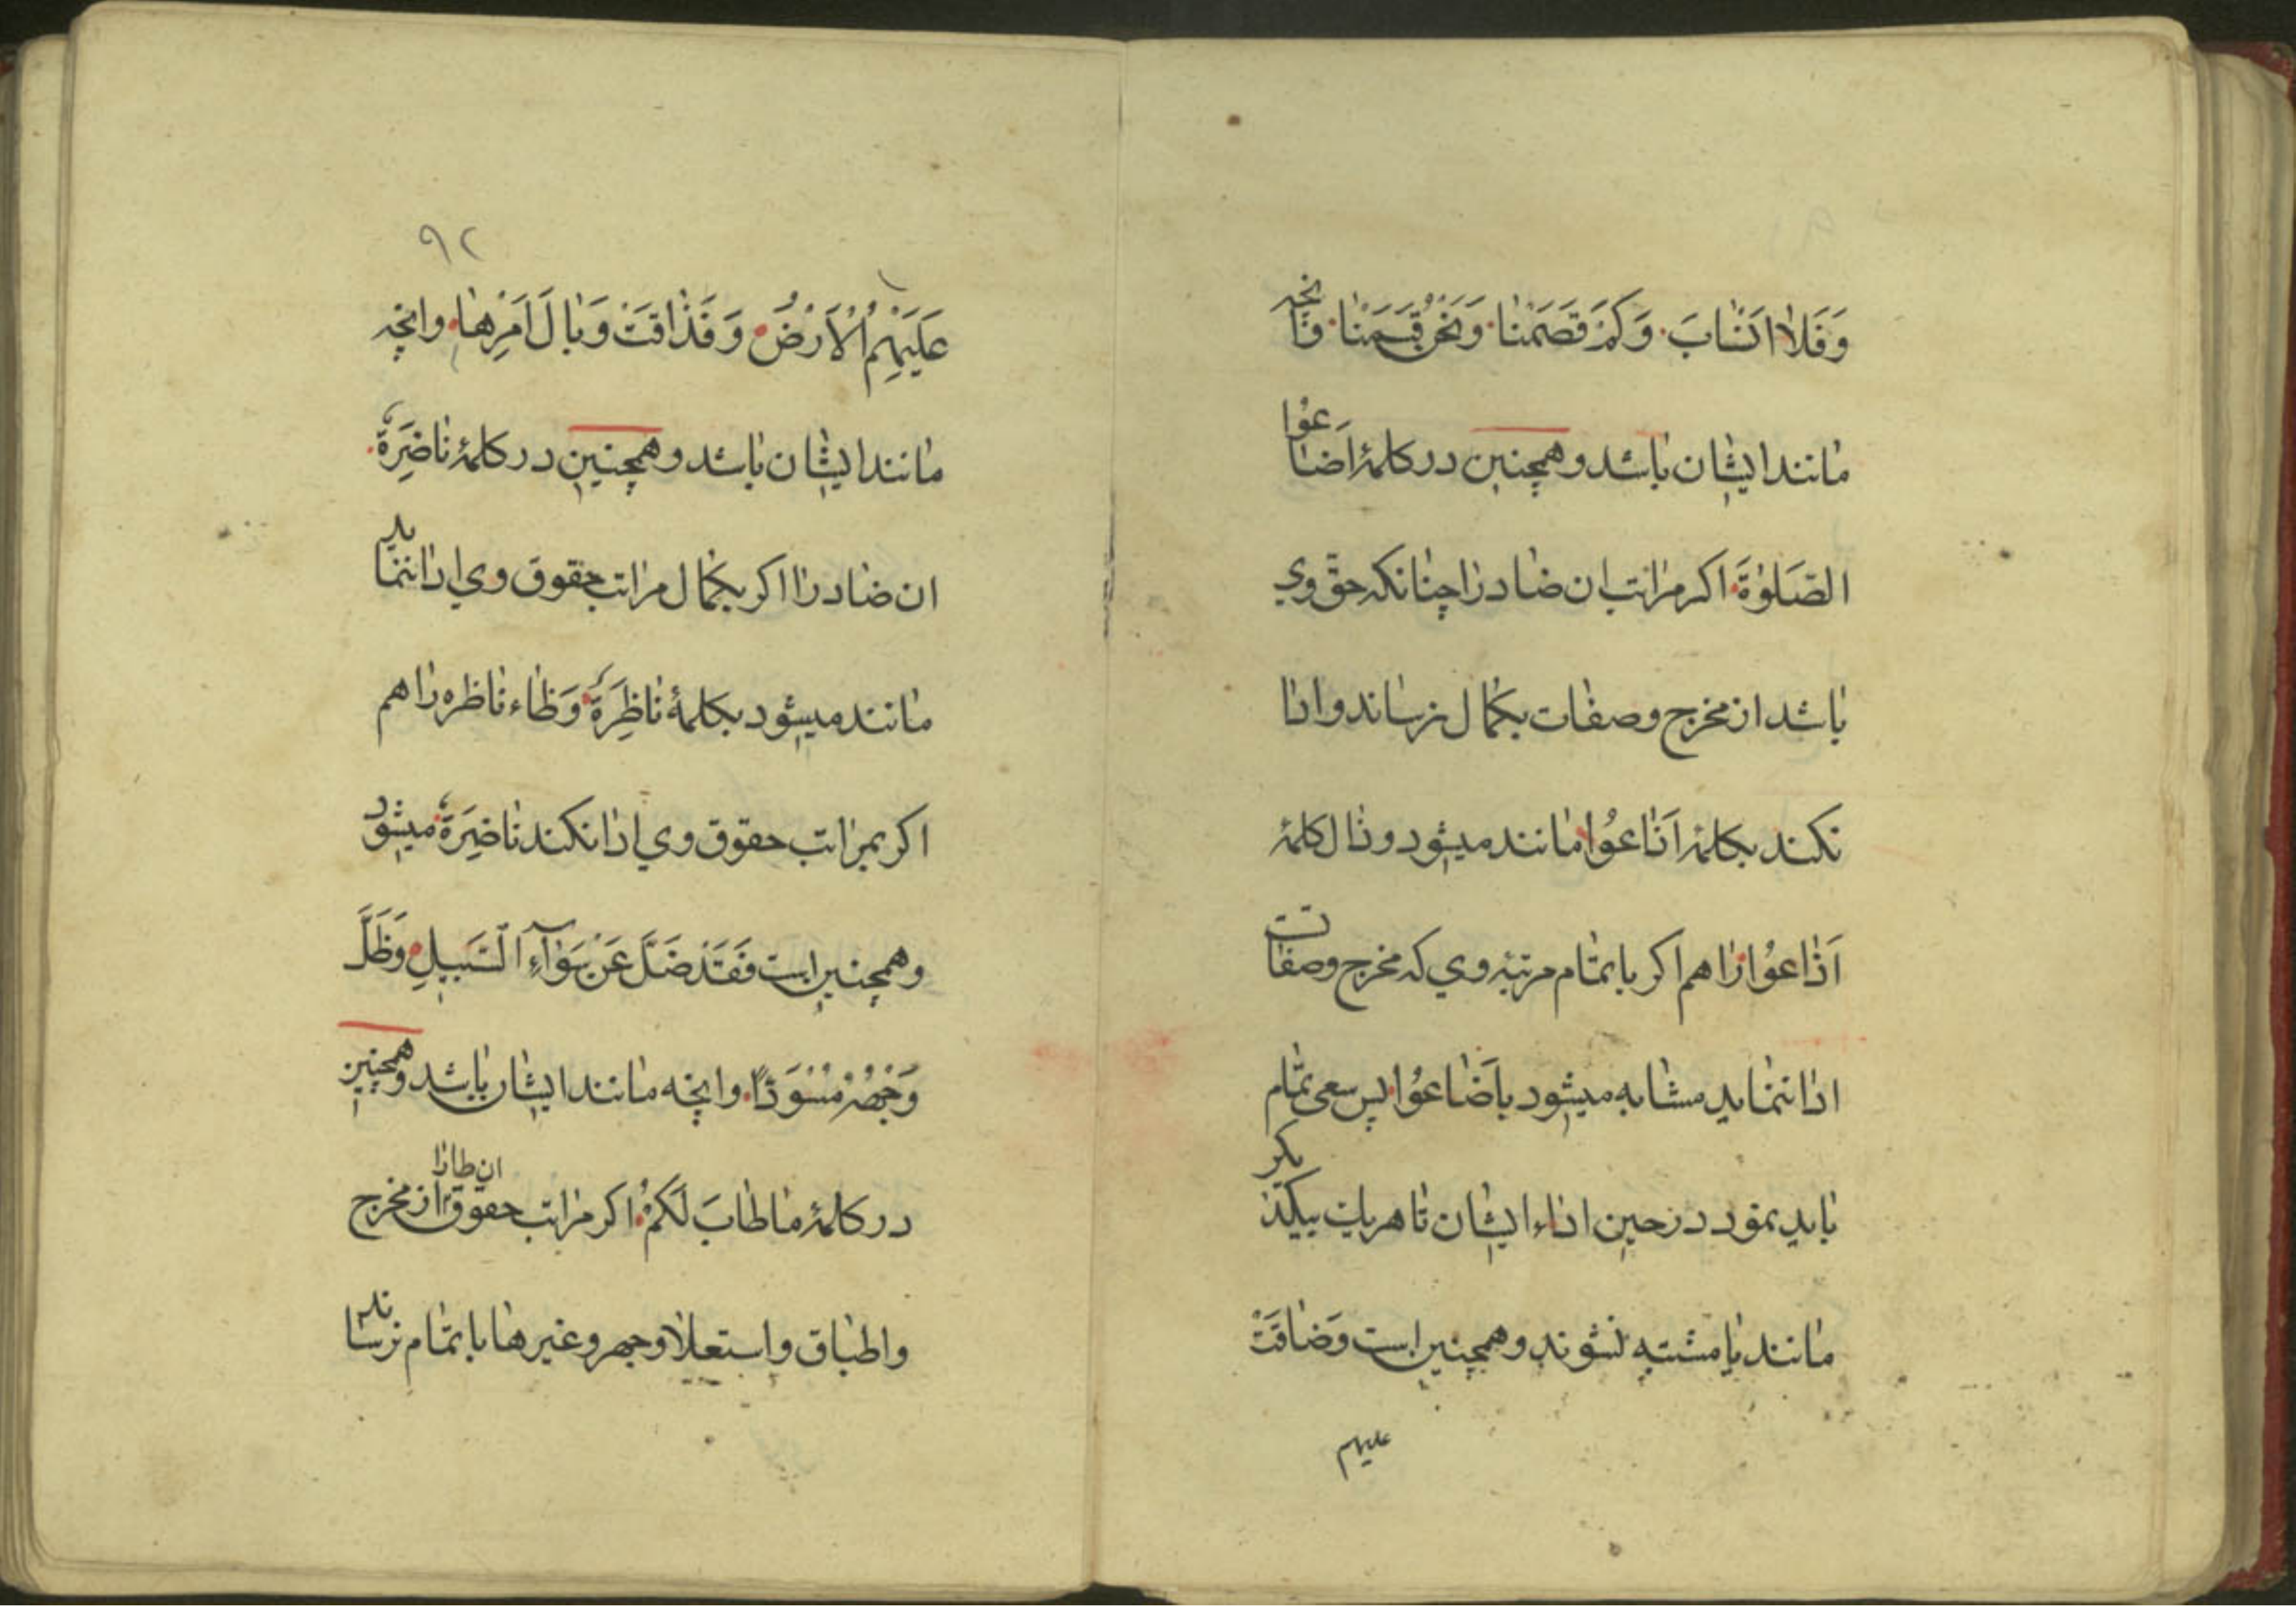 وَفَلَا اَنْسَابَ وَكَمْ قَصَمْنَا وَنَحْنُ قَسَمْنَا وانچه
مانند ایشان باشد وهمچنین در کلمهٔ اَضَاعُوا
الصَّلوٰةَ اکر مراتب ان ضاد را چنانکه حقّ وي
باشد از مخرج وصفات بکمال نرساند وادا
نکند بکلمهٔ اَذَاعُوا مانند میشود وذال کلمهٔ
اَذَاعُوا را هم اکر باتمام مرتبهٔ وي که مخرج وصفاتت
ادا ننماید مشابه میشود باَضَاعُوا پس سعی تمام
باید نمود در حین اداء ایشان تا هر یک بیکدیکر
مانند یا مشتبه نشوند وهمچنین است وَضَاقَتْ
علیهم
۹۲
عَلَيْهِمُ الْاَرْضُ وَ فَذَاقَتْ وَبَالَ اَمْرِهَا وانچه
مانند ایشان باشد وهمچنین در کلمهٔ نَاضِرَةٌ
ان ضاد را اکر بکمال مراتب حقوق وي ادا ننماید
مانند میشود بکلمهٔ نَاظِرَةٌ وَظاء ناظره را هم
اکر بمراتب حقوق وي ادا نکند نَاضِرَةٌ میشود
وهمچنین است فَقَدْ ضَلَّ عَنْ سَوَآءِ السَّبِيلِ وَظَلَّ
وَجْهُهُ مُسْوَدًّا وانچه مانند ایشان باشد وهمچنین
در کلمهٔ مَا طَابَ لَكُمْ اکر مراتب حقوق ان طا را از مخرج
واطباق واستعلا وجهر وغیرها باتمام نرساند